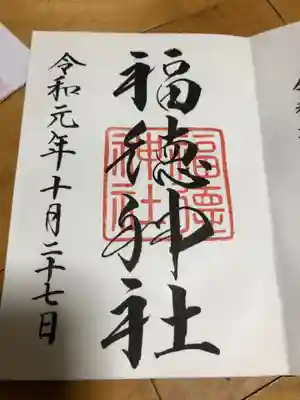 福徳神社
福徳神社
令和元年十月二十七日